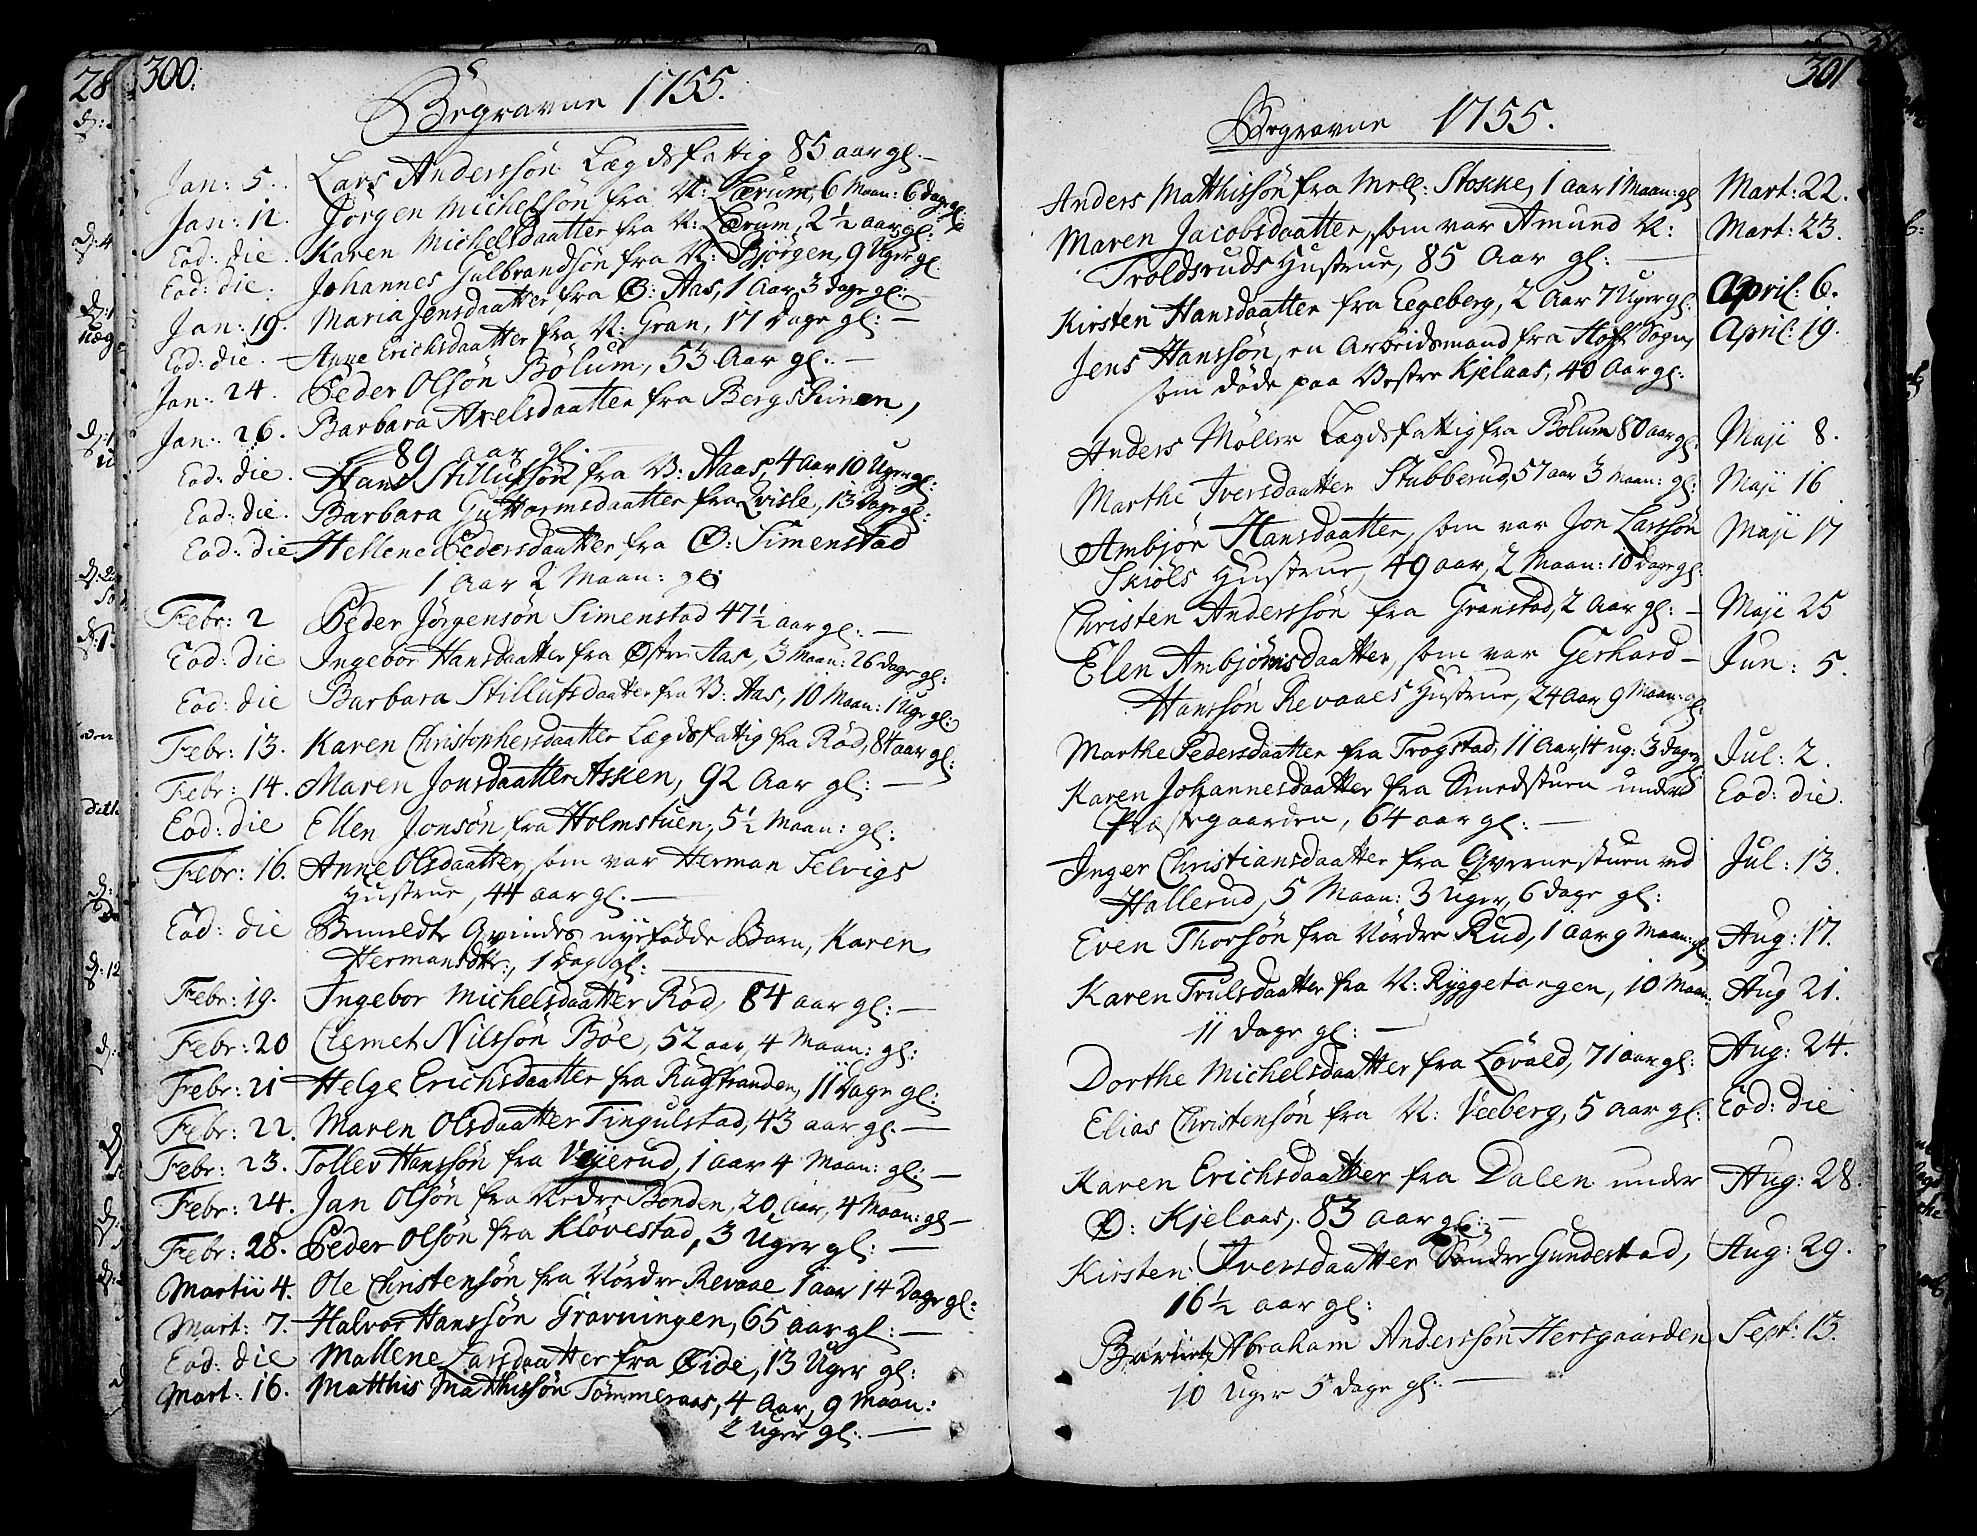 300.
Begravne 1755.
Jan: 5. Lars Anderssön Lægdsfattig 85 aar gl. —
Jan: 12. Jörgen Michelssön fra V: Lærum, 6 Maan: 6 Dage gl:
Eod: die. Karen Michelsdaatter fra V: Lærum, 2½ aar gl:
Eod: die. Johannes Gulbrandsön fra V: Bjørgen, 9 Uger gl:
Jan: 19. Maria Jensdaatter fra Ø: Aas, 1 Aar, 3 dage gl: —
Eod: die. Anne Erichsdaatter fra V: Gran, 17 Dage gl: —
Jan: 24. Peder Olsön Bölum, 53 Aar gl. —
Jan: 26. Barbara Axelsdaatter fra Bergs
89 aar gl.
Eod: die. Hans Stillufsön fra V: Aaas, 4 Aar 10 Uger gl:
Eod: die. Barbara Guttormsdaatter fra Qvisle, 13 Dage gl:
Eod: die Hellene Pedersdaatter fra Ø: Simenstad
1 Aar 2 Maan: gl:
Febr: 2 Peder Jörgensön Simenstad 47½ aar gl: —
Eod: die Ingebor Hansdaatter fra Østre Aas, 3 Maan: 26 dage gl:
Eod: die Barbara Stillufsdaatter fra V: Aas, 10 Maan: 1 Uge gl:
Febr: 13. Karen Christophersdaatter Lægdsfattig fra Röd, 84 aar gl:
Febr: 14. Maren Jonsdaatter Asken, 92 Aar gl: —
Eod: die Ellen Jonsön fra Holmstuen, 5½ Maan: gl:
Febr: 16. Anne Olsdaatter, som var Herman Selvigs
Hustrue, 44 aar gl. —
Eod: die Qvindes nyefödde Barn, Karen
Hermansdtr:, 1 Dag gl: —
Febr: 19. Ingebor Michelsdaatter Röd, 84 aar gl: —
Febr: 20 Clemet Nilssön Böe, 52 aar, 4 Maan: gl:
Febr: 21 Helge Erichsdaatter fra Rudstranden, 11 Dage gl:
Febr: 22. Maren Olsdaatter Tingulstad, 43 aar gl: —
Febr: 23. Tollev Hanssön fra Vejerud, 1 aar 4 Maan: gl: —
Febr: 24. Jan Olsön fra Nedre Bonden, 20 Aar, 4 Maan: gl —
Febr: 28. Peder Olsön fra Klövestad, 3 Uger gl: —
Martii 4. Ole Christensön fra Nördre Revaae 1 aar 14 Dage gl:
Mart: 7. Halvor Hanssön Gravningen, 65 aar gl: —
Eod: die Mallene Larsdaatter fra Øide, 13 Uger gl:
Mart: 16. Matthis Matthissön Tömmeraas, 4 Aar, 9 Maan:
2 Uger gl: —
301
Begravne 1755.
Anders Matthissön fra Mell: Stokke, 1 aar 1 Maan: gl Mart: 22.
Maren Jacobsdaatter, som var Amund V: Mart: 23.
Troldsruds Hustrue, 85 Aar gl: —
Kirsten Hansdaatter fra Eegeberg, 2 Aar 7 Uger gl: April: 6.
Jens Hanssön, en Arbeidsmand fra Hoff Sogn, April: 19.
som döde paa Vestre Kjelaas, 40 Aar gl:
Anders Möller Lægdsfattig fra Bölum 80 aar gl: Maji 8.
Marthe Iversdaatter Stubberud, 57 aar 3 Maan: gl: Maji 16
Ambjör Hansdaatter, som var Jon Larssön Maji 17
Skiöls Hustrue, 49 aar, 2 Maan: 10 Dage gl:
Christen Anderssön fra Granstad, 2 Aar gl: — Maji 25
Elen Ambjörnsdaatter, som var Gerhard — Jun: 5.
Hanssön Revaaes Hustrue, 24 Aar 9 Maan: gl
Marthe Pedersdaatter fra Trogstad, 11 Aar, 14 ug: 3 dage gl Jul: 2.
Karen Johannesdaatter fra Smedstuen under Eod: die.
Præstegaarden, 64 aar gl: —
Inger Christiansdaatter fra Qvernestuen ved Jul: 13.
Hallerud, 5 Maan: 3 Uger, 6 dage gl:
Even Thorsön fra Nördre Rud, 1 aar 9 Maan: gl Aug: 17.
Karen Trulsdaatter fra V: Ryggetangen, 10 Maan. Aug 21.
11 dage gl: —
Dorthe Michelsdaatter fra Lövald, 71 aar gl: Aug: 24.
Elias Christensön fra V: Veeberg, 5 Aar gl: Eod: die
Karen Erichsdaatter fra Dalen under Aug: 28.
Ø: Kjelaas, 83 aar gl: —
Kirsten Iversdaatter Söndre Gundestad, Aug: 29.
16½ aar gl:
Abraham Anderssön Hersgaarden Sept: 13.
10 Uger 5 dage gl: —